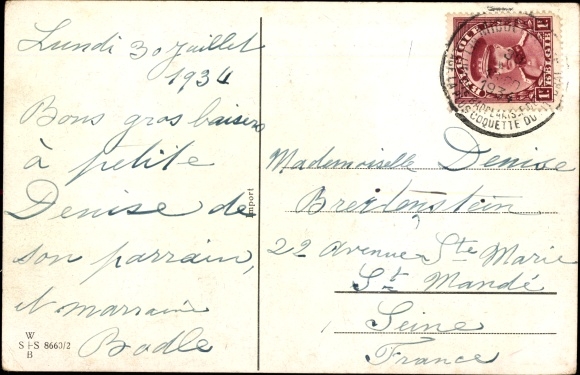 Lundi 30 Juillet
1934
Bons gros baisers
à petite
Denise de
son parrain,
et marraine
Bodle
W
S+S 8660/2
B
Import
BELGIQUE
BELGIË
1F
1F
COQUETTE DU
Mademoiselle Denise
Breitenstein
22 Avenue Ste Marie
St Mandé
Seine
France